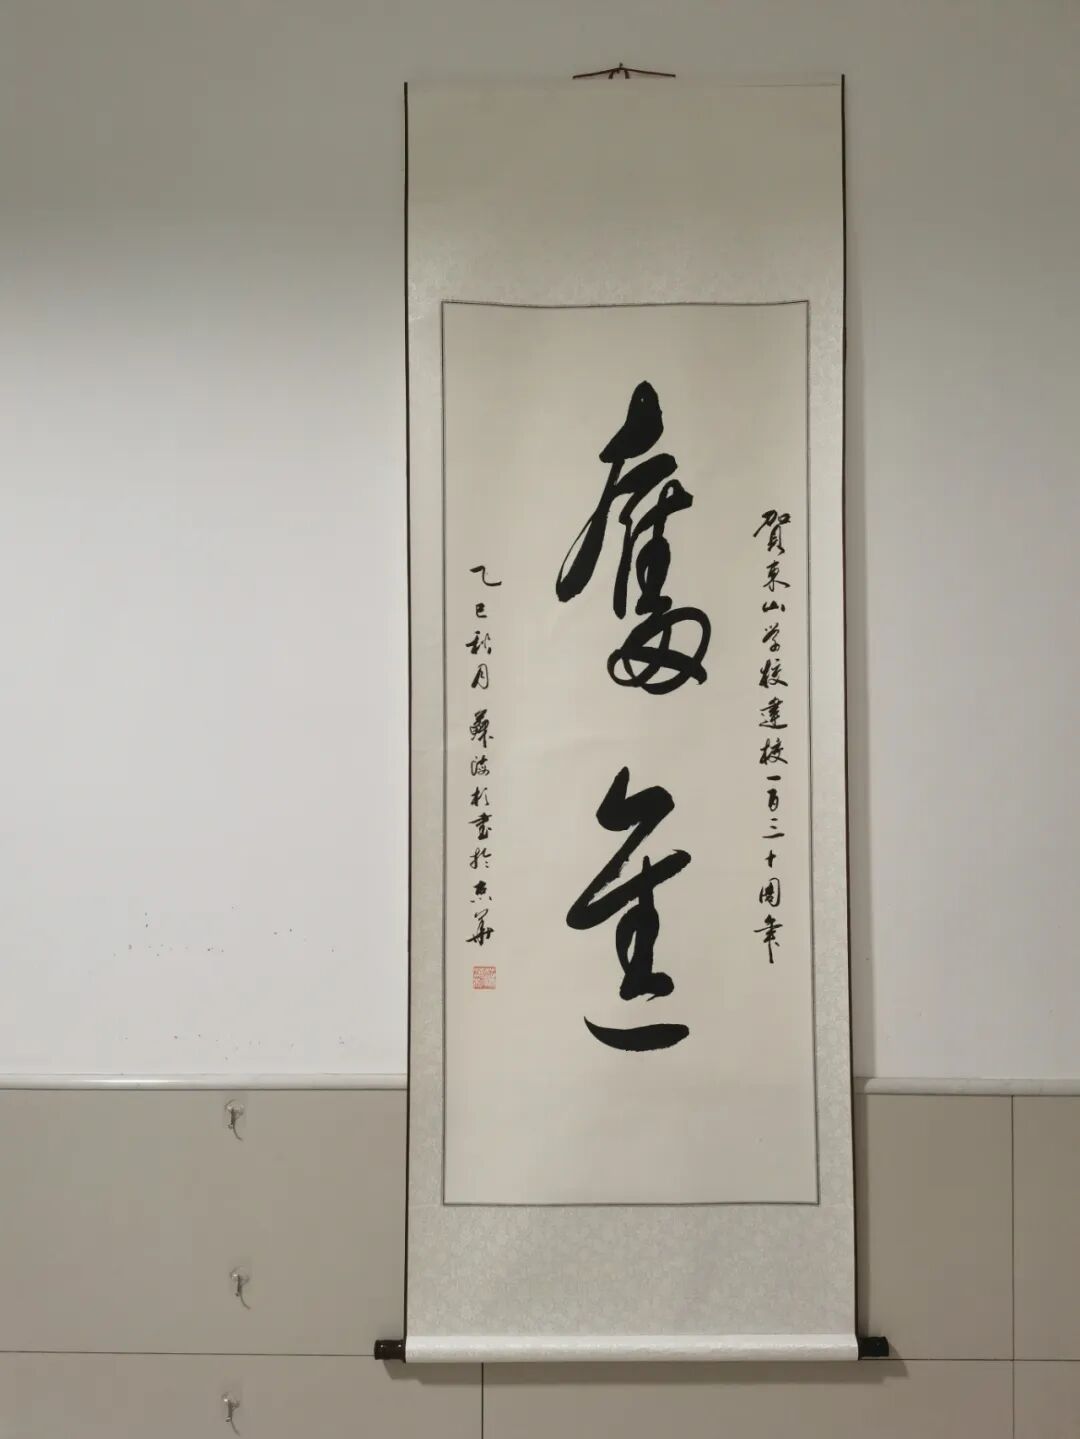 賀東山学校建校一百三十周年
奮進
乙巳秋月蘇海杉書於京華